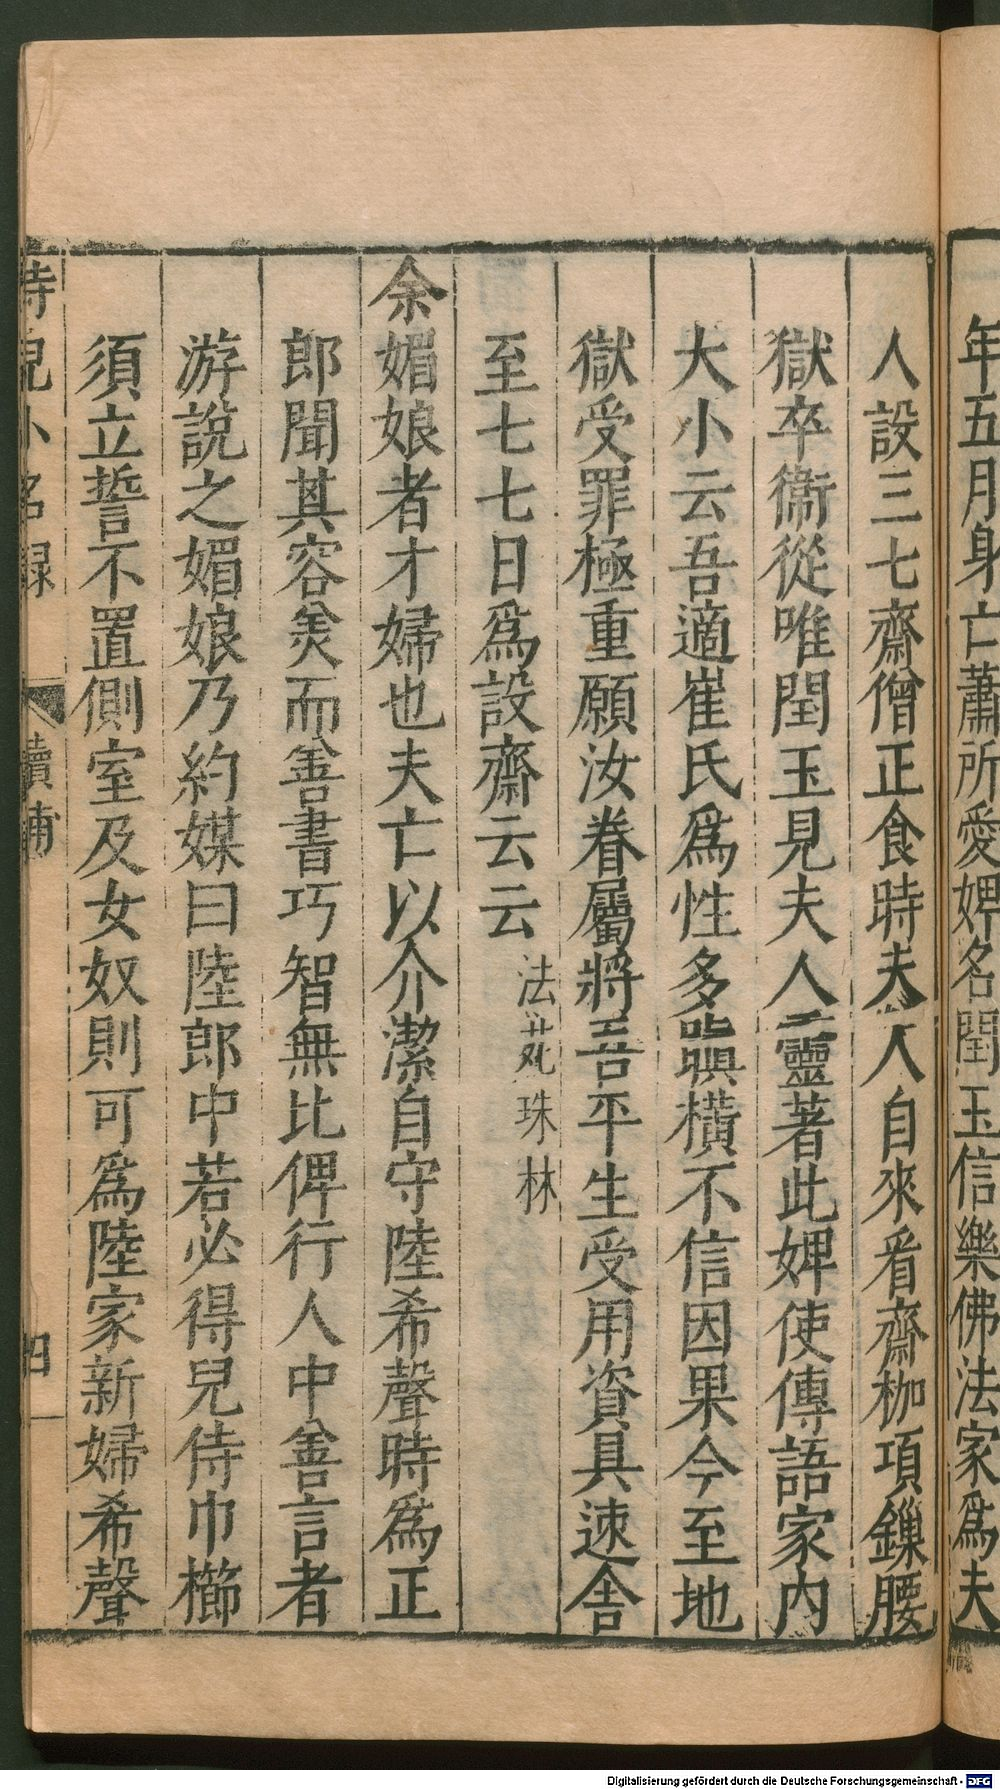 年五月身亡蕭所愛婢名閏玉信樂佛法家爲夫
人設三七齋僧正食時夫人自來看齋枷項鏁腰
獄卒衞從唯閏玉見夫人靈著此婢使傳語家内
大小云吾適崔氏爲性多瞋橫不信因果今至地
獄受罪極重願汝眷屬將吾平生受用資具速舍
至七七日爲設齋云云 法苑珠林
余媚娘者才婦也夫亡以介潔自守陸希聲時爲正
郎聞其容美而善書巧智無比俾行人中善言者
游說之媚娘乃約媒曰陸郎中若必得兒侍巾櫛
須立誓不置側室及女奴則可爲陸家新婦希聲
侍兒小名録 續補 四
Digitalisierung gefördert durch die Deutsche Forschungsgemeinschaft - DFG